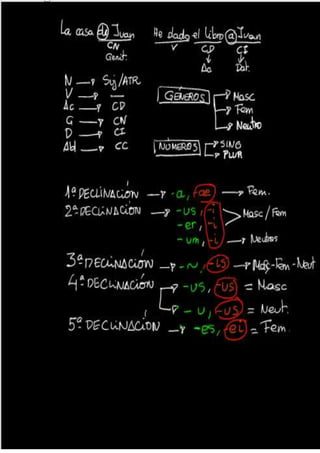 La casa de Juan
CN
Genit.
He dado el libro a Juan
V CD CI
Ac Dat.
N → Suj/ATR
V → —
Ac → CD
G → CN
D → CI
Abl → CC
GÉNEROS → Masc
→ Fem
→ Neutro
NÚMEROS → SING
→ PLUR
1ª DECLINACIÓN → -a, -ae → Fem.
2ª DECLINACIÓN → -us, -i
-er, -i Masc/Fem
-um, -i → Neutros
3ª DECLINACIÓN → -~, -is → Masc-Fem-Neut
4ª DECLINACIÓN → -us, -us = Masc
→ -u, -us = Neut.
5ª DECLINACIÓN → -es, -ei = Fem.